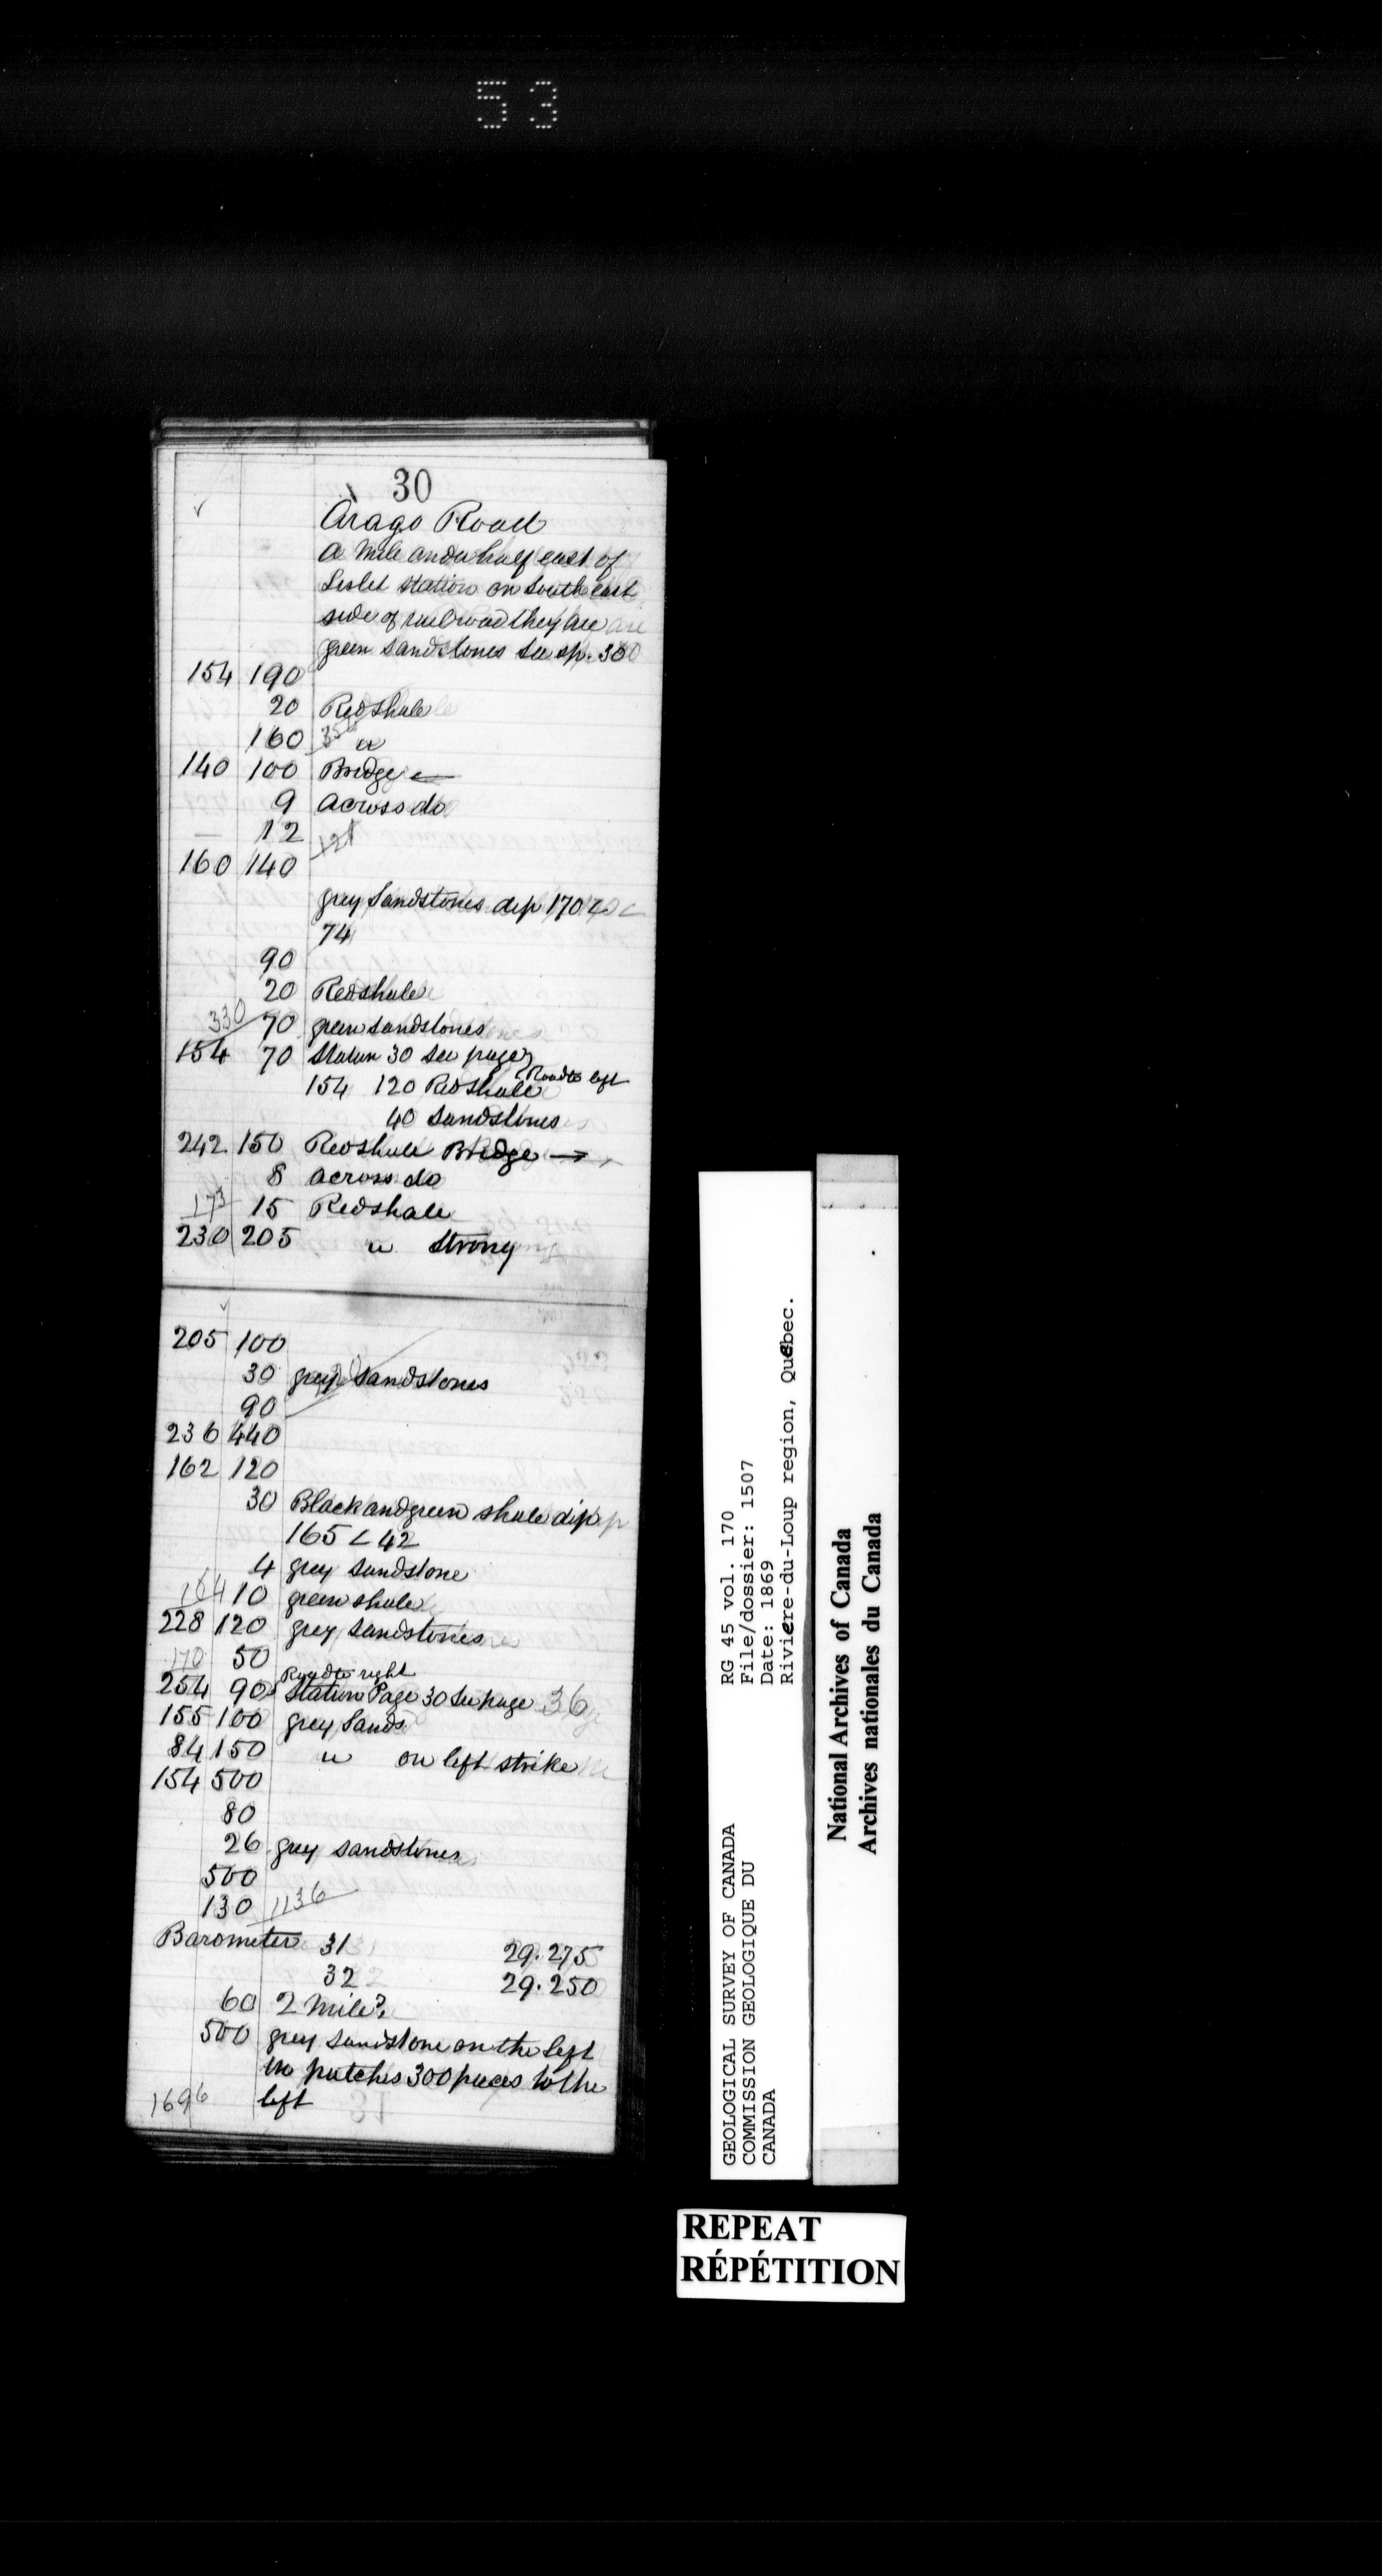 53
30
Arago Road
a mile and a half east of
Leslet station on south east
side of railroad they are
green sandstones see sp. 30
154 190
20 Red shale
160 350 "
140 100 Bridge ←
9 across do
— 12 121
160 140
grey sandstones dip 170 <
74
90
20 Red shale
330 70 green sandstones
154 70 Station 30 see page
Road to left
154 120 Red shale
40 sandstones
242 150 Red shale Bridge →
8 across do
173 15 Red shale
230 205 " strong
205 100
30 grey sandstones
90
236 440
162 120
30 Black and green shale dip
165 < 42
4 grey sandstone
164 10 green shale
228 120 grey sandstones
170 50
Road to right
254 90 Station Page 30 see page 36
155 100 grey sands
84 150 " on left strike
154 500
80
26 grey sandstones
500
130 1136
Barometer 31 29.275
32 29.250
60 2 Mile
500 grey sandstone on the left
in patches 300 paces to the
1696 left
RG 45 vol. 170
File/dossier: 1507
Date: 1869
Riviere-du-Loup region, Quebec.
GEOLOGICAL SURVEY OF CANADA
COMMISSION GEOLOGIQUE DU
CANADA
National Archives of Canada
Archives nationales du Canada
REPEAT
RÉPÉTITION